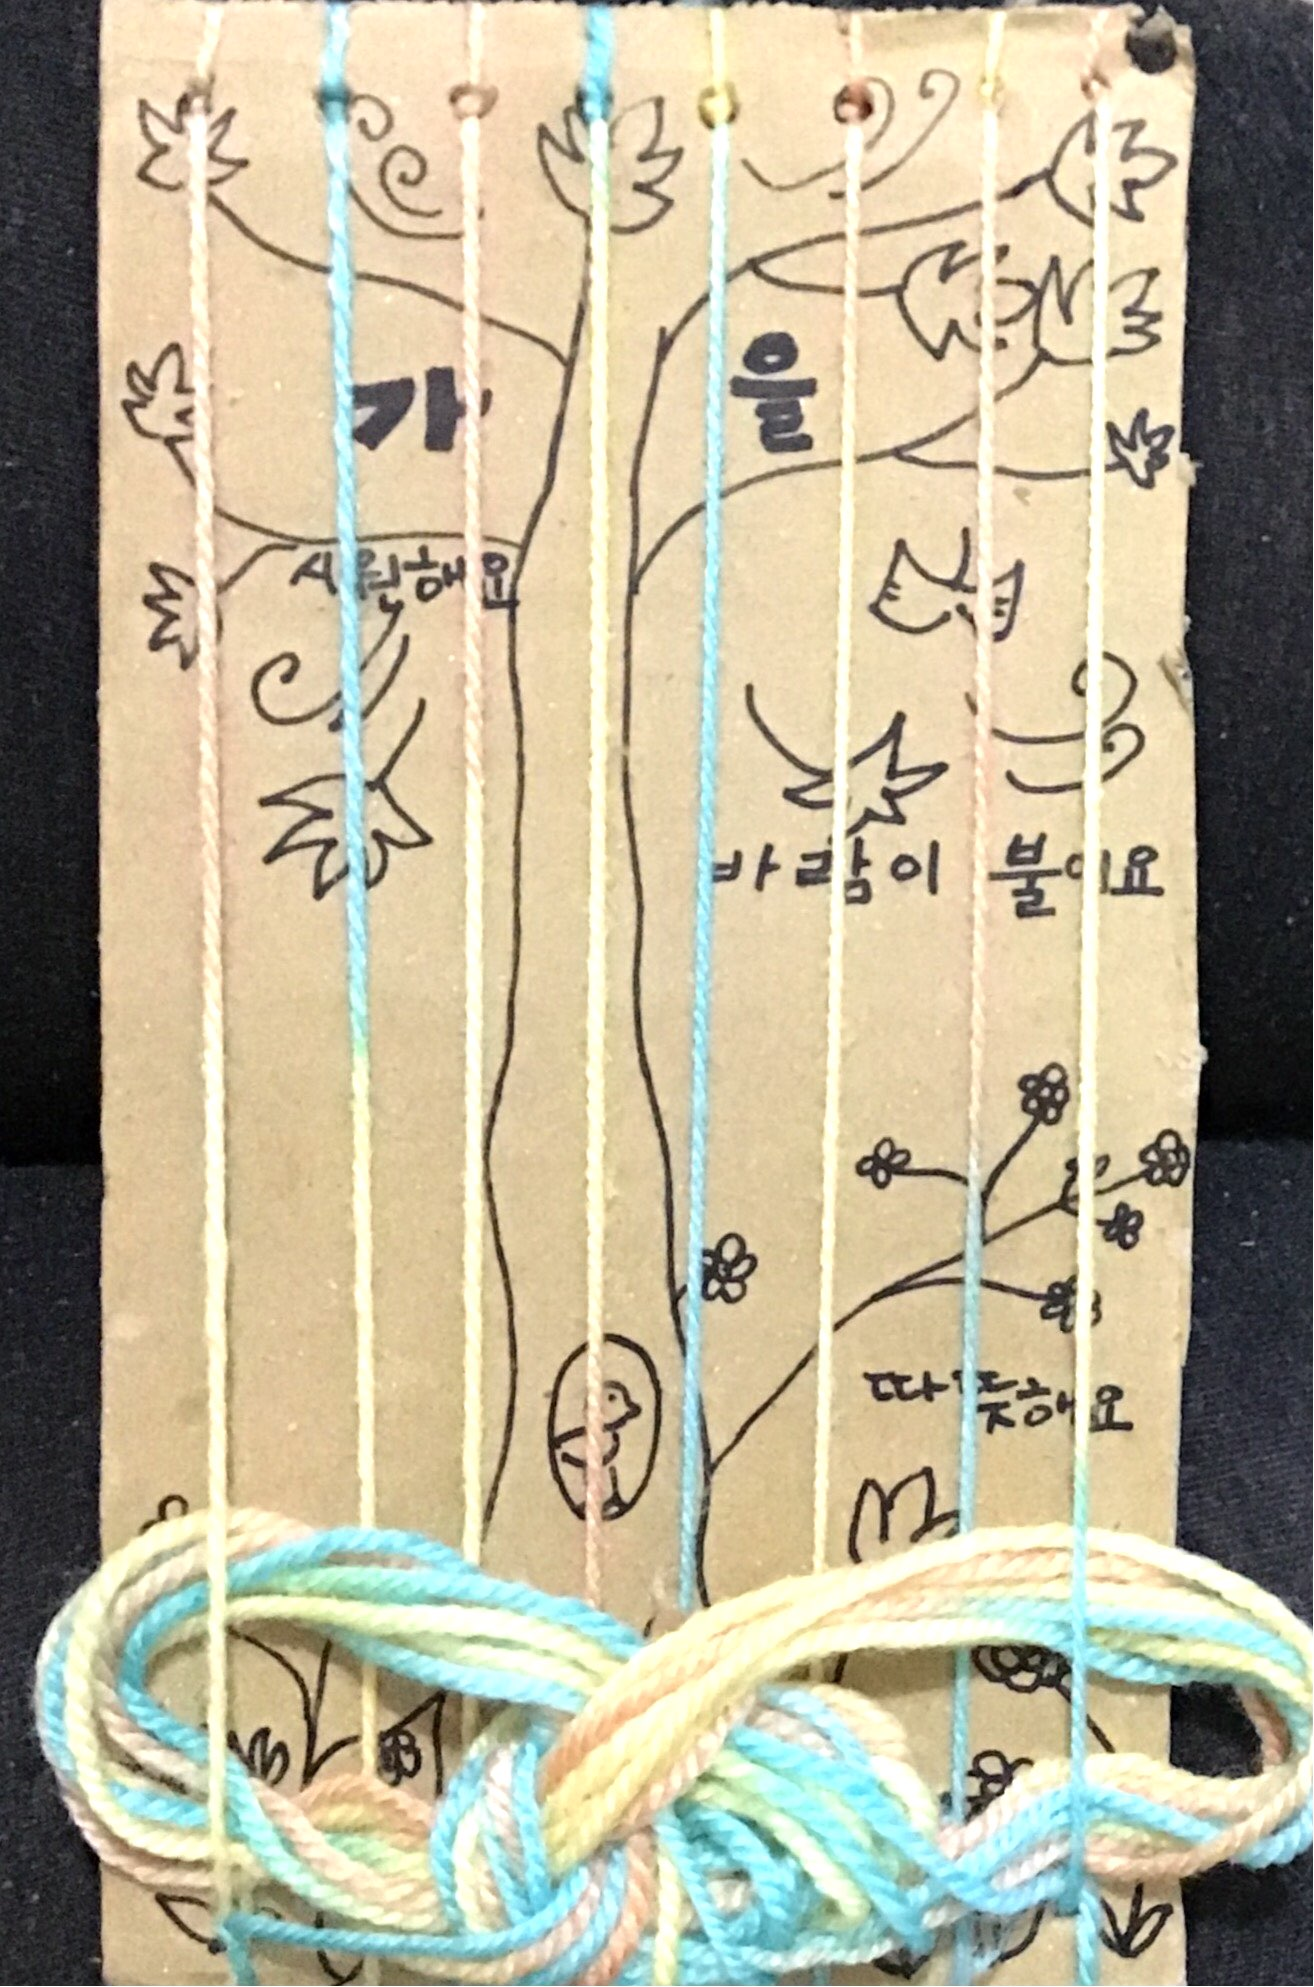 가 을
시원해요
바람이 불어요
따뜻해요